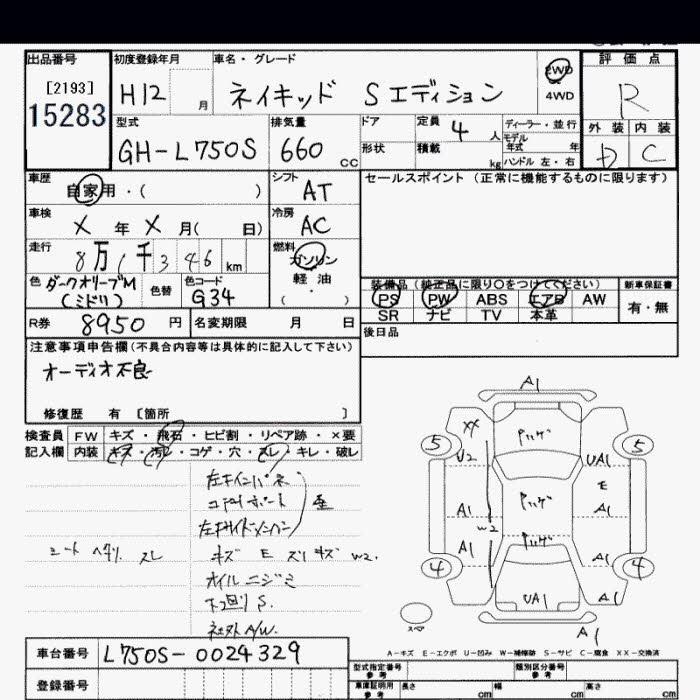 出品番号
[2193]
15283
初度登録年月
H12 月
車名・グレード
ネイキッド Sエディション
2WD
4WD
評価点
R
外装 内装
D C
型式
GH-L750S
排気量
660 cc
ドア
形状
定員 4 人
積載 kg
ディーラー・並行
モデル
年式 年
ハンドル 左・右
車歴
自家用・( )
シフト
AT
セールスポイント (正常に機能するものに限ります)
車検
X 年 X 月( 日)
冷房
AC
走行
8万1千346 km
燃料
ガソリン
軽油
( ・ )
色 ダークオリーブM
(ミドリ)
色替
色コード
G34
装備品 (純正品に限り○をつけてください)
PS PW ABS エアB AW
SR ナビ TV 本革
新車保証書
有・無
R券 8950 円
名変期限 月 日
後日品
注意事項申告欄(不具合内容等は具体的に記入して下さい)
オーディオ不良
修復歴 有 [箇所 ]
検査員
記入欄
FW キズ・飛石・ヒビ割・リペア跡・×要
内装 キズ・汚レ・コゲ・穴・スレ・キレ・破レ
左右インパネ
コアサポート
左右サイドメンバー
歪
シート ヘタリ スレ
キズ E スリキズ W2.
オイルニジミ
下回りS.
社外A/W.
A1
XX
5
5
U2
UA1
E
A1
A1
W2
A1
A1
4
4
UA1
A1
A1
スペア
A-キズ E-エクボ U-凹み W-補修跡 S-サビ C-腐食 XX-交換済
車台番号 L750S-0024329
登録番号
型式指定番号
参考
類別区分番号
参考
車庫証明用
参考
長さ cm
幅 cm
高さ cm